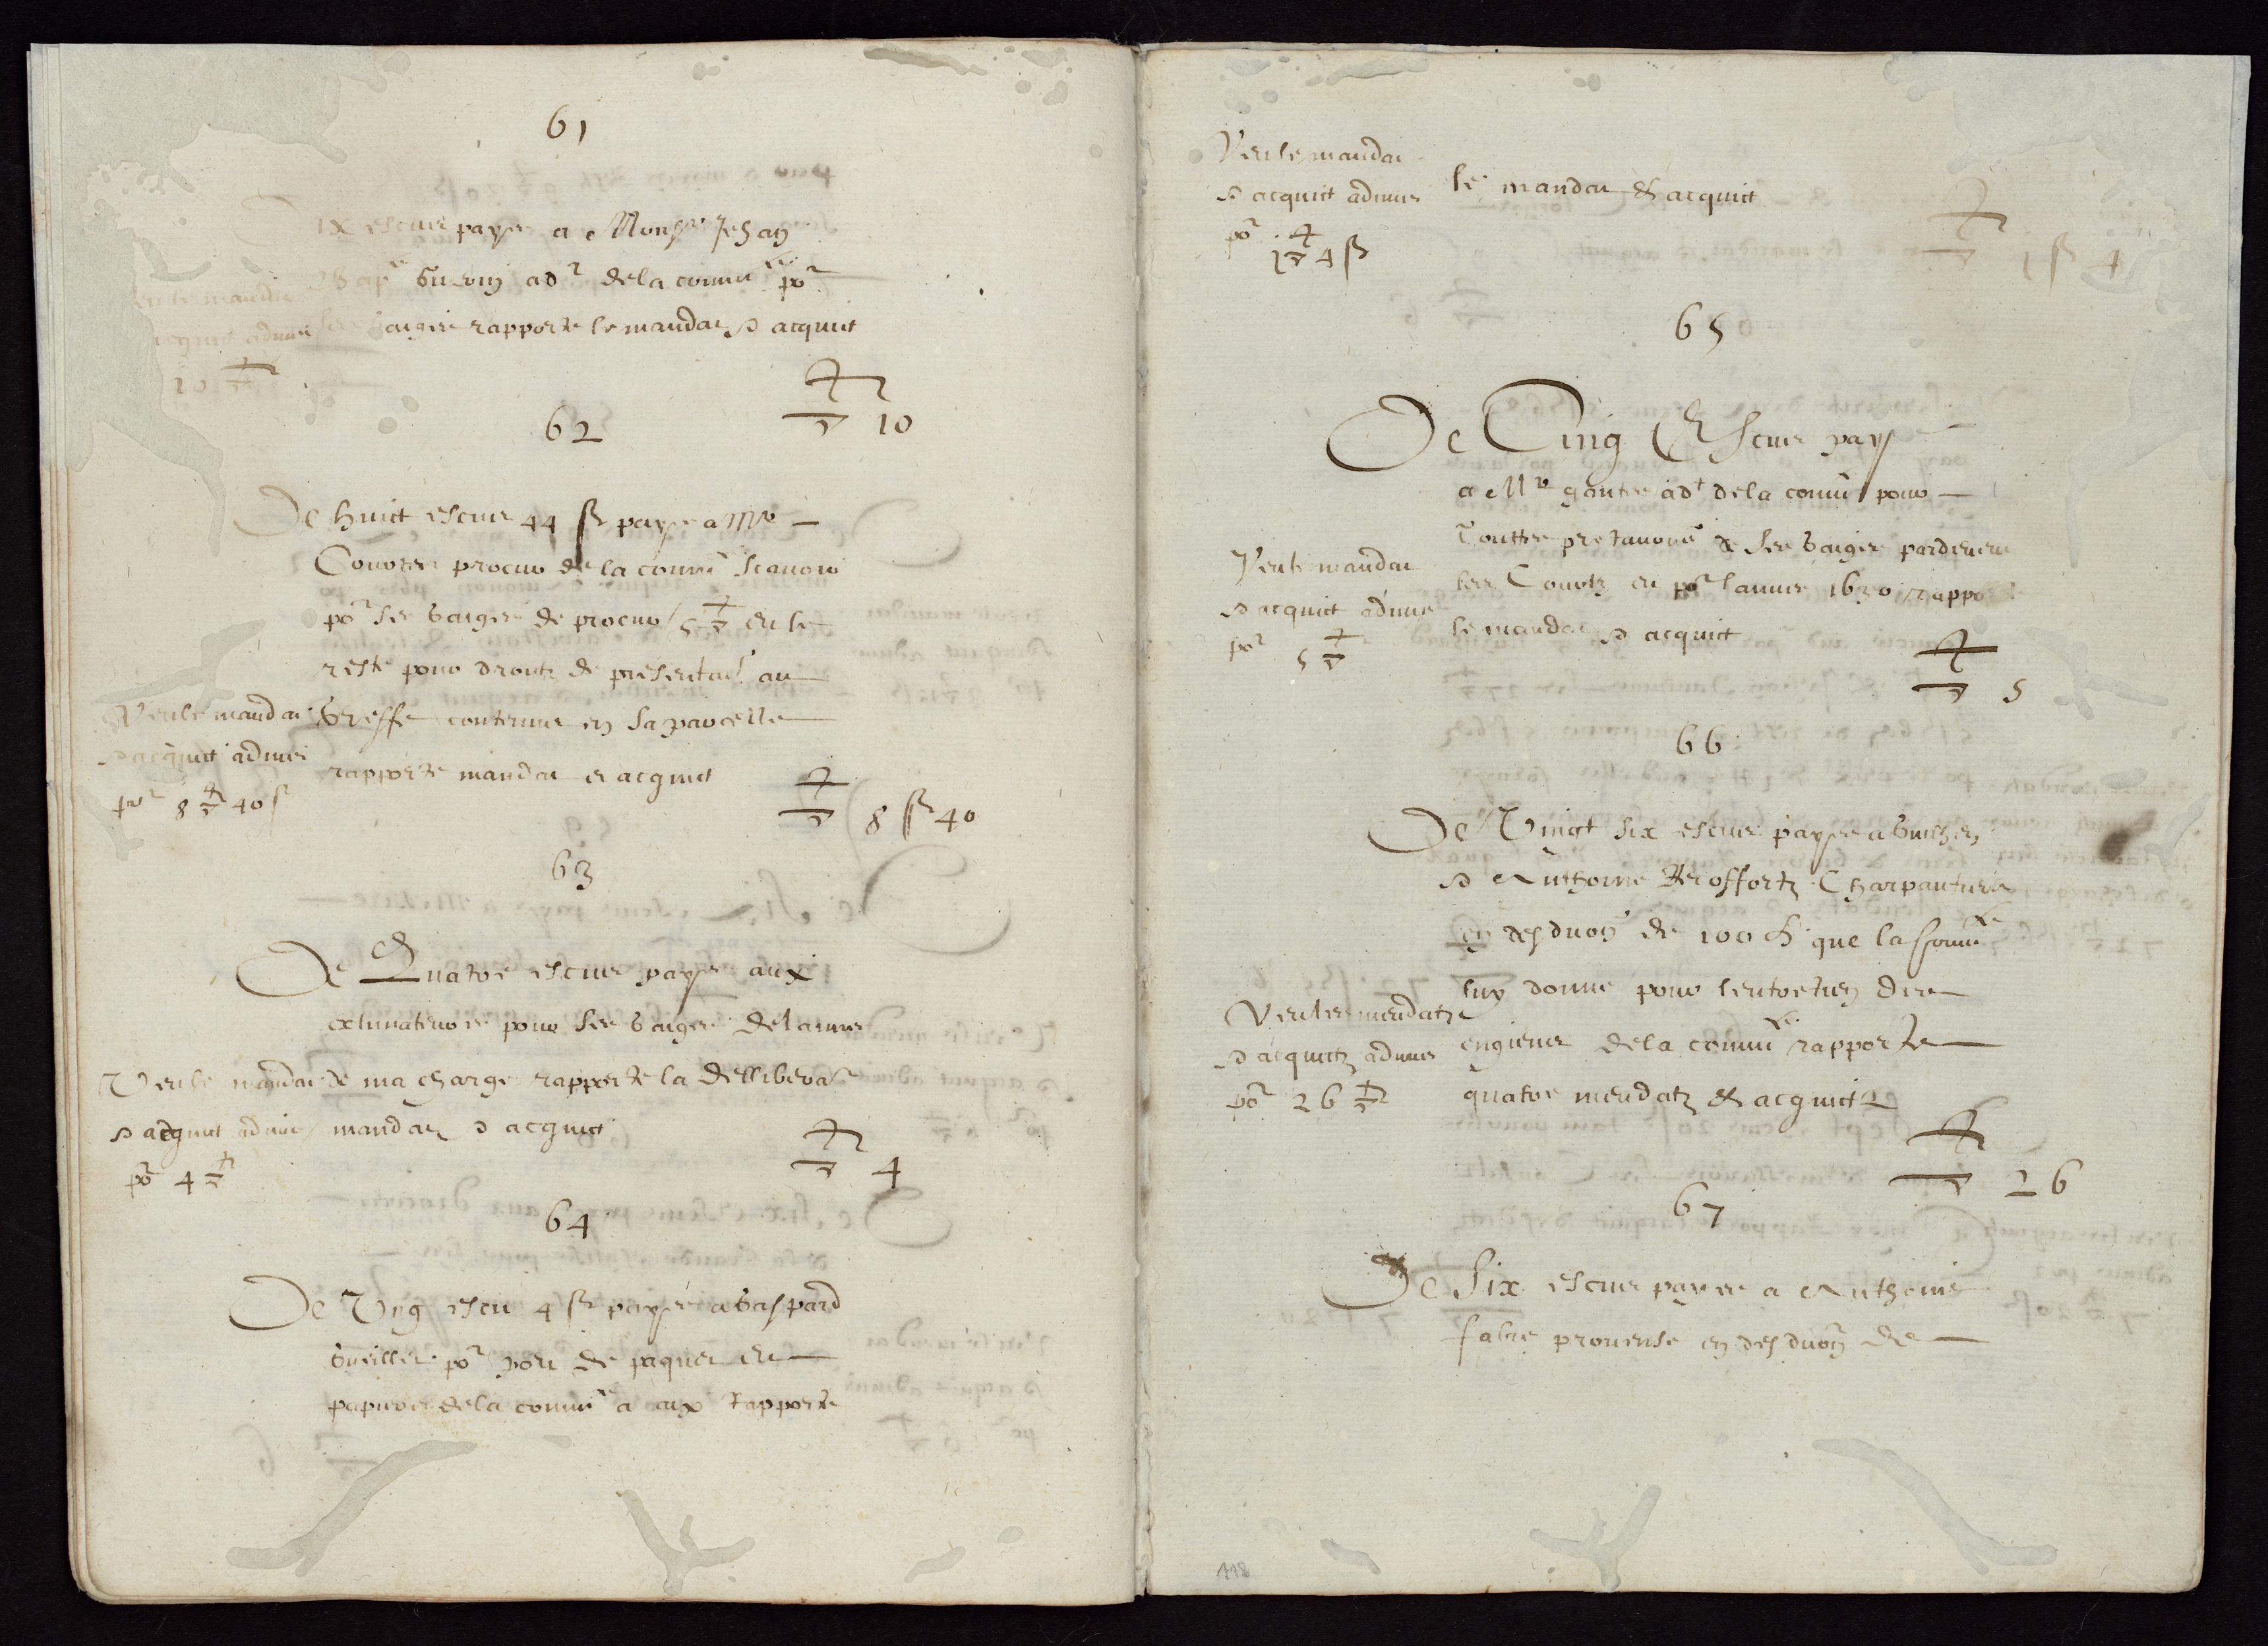 61
ix escus payes a Monsr Jehan
ad^r de la commu^te po^r
gaiges rapporte le mandat & acquit
acquit admis
10
▽ 10
62
De huict escus 44 ss payes a M^e
procur de la commu^te scavoir
po^r ses gaiges de procur 5 ▽ et le
reste pour droitz de presentaon au
greffe contenue en sa parcelle
rapporte mandat et acquit
Veu le mandat
& acquit admis
po^r 8 ▽ 40 s
▽ 8 ss 40
63
De Quatre escus payes aux
extimateurs pour ses gaiges de lannee
de ma charge rapporte la delliberaon
mandat & acquit
Veu le mandat
& acquit admis
po^r 4 ▽
▽ 4
64
De Ung escu 4 ss payes a Gaspard
po^r port de paquet et
papiers de la commu^te a aix Rapporte
Veu le mandat
& acquit admis
po^r
1 ▽ 4 ss
le mandat & acquit
▽ 1 ss 4
65
De Cinq Escus payes
a M^e gautier ad^t de la commu^te pour
touttes pretantions de ses gaiges pardevent
les Courtz et po^r lannee 1630 rapporte
le mandat & acquit
Veu le mandat
& acquit admis
po^r 5 ▽
▽ 5
66
De Vingt six escus payes a
& Anthoine Charpantiers
en desduon de 100 que la commu^te
luy donne pour lentretien des
engiens de la commu^te rapporte
quatre mendatz & acquictz
Veu les mendatz
& acquitz admis
po^r 26 ▽
▽ 26
67
De Six escus payes a Anthoine
fabre prouense en desduon de
118